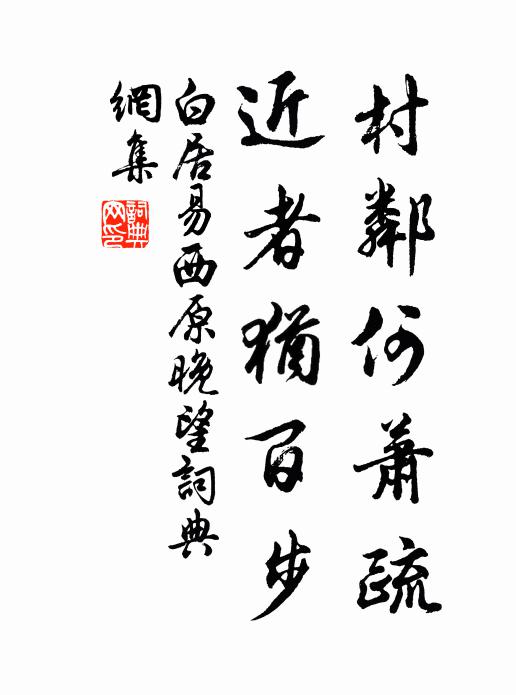 村鄰何蕭疏
近者猶百步
白居易西原晚望詞典
網集
詞典
网印